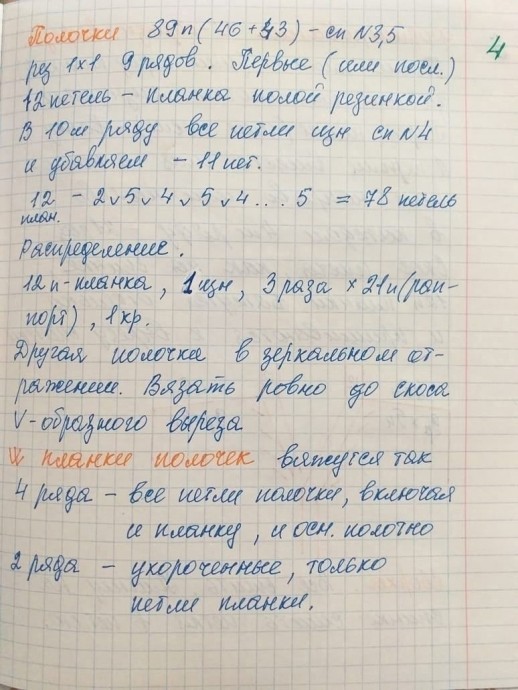 Полочки 89п (46+43) – сп N3,5
4
рез 1х1 9 рядов. Первые (или посл.)
12 петель – планка полой резинкой.
В 10м ряду все петли изн сп N4
и убавляем – 11 пет.
12 – 2 v 5 v 4 v 5 v 4 ... 5 = 78 петель
план.
Распределение.
12 п - планка, 1 изн, 3 раза × 21п (рап-
порт), 1 кр.
Другая полочка в зеркальном от-
ражении. Вязать ровно до скоса
V-образного выреза
планки полочек вяжутся так
4 ряда – все петли полочки, включая
и планку, и осн. полотно
2 ряда – укороченные, только
петли планки.